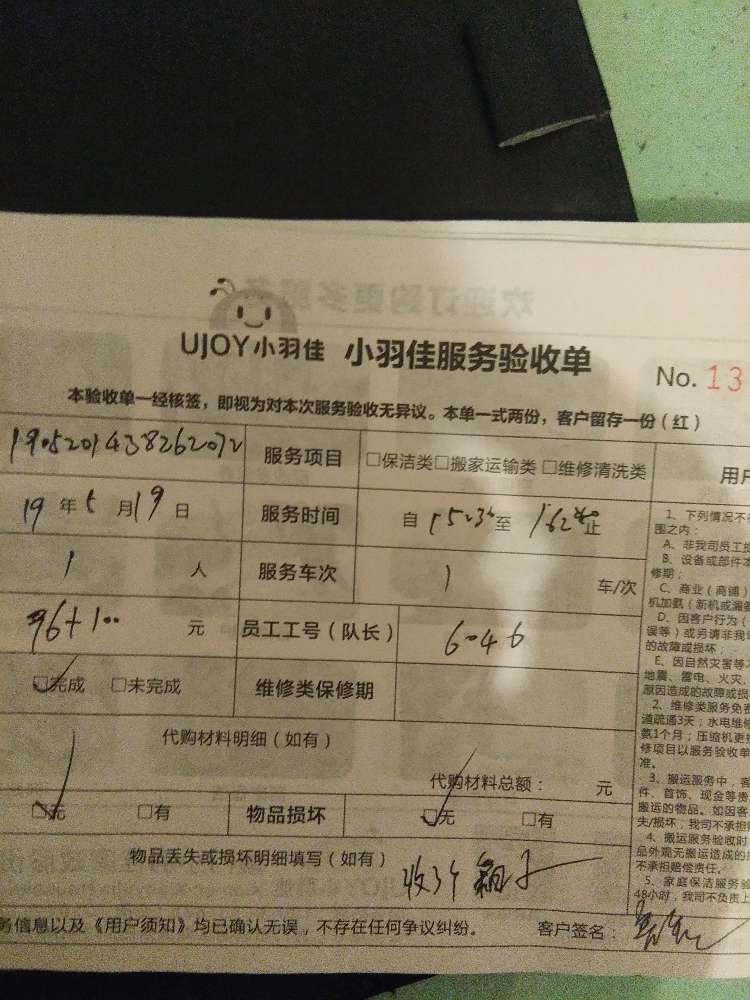 UJOY小羽佳 小羽佳服务验收单
No. 13
本验收单一经核签，即视为对本次服务验收无异议。本单一式两份，客户留存一份（红）
1905201438262072 服务项目 □保洁类□搬家运输类 □维修清洗类
19年5月19日 服务时间 自 至 止
1 人 服务车次 1 车/次
96+100 元 员工工号（队长） 6046
完成 □未完成 维修类保修期
代购材料明细（如有）
代购材料总额： 元
无 □有 物品损坏 无 □有
物品丢失或损坏明细填写（如有）
务信息以及《用户须知》均已确认无误，不存在任何争议纠纷。 客户签名：
用户
1、下列情况不
围之内：
A、非我司员工
B、设备或部件本
修期；
C、商业（商铺）
机加氨（新机或漏
D、因客户行为（
误等）或另请非我
的故障或损坏；
E、因自然灾害等
地震、雷电、火灾、
原因造成的故障或损
2、维修类服务免费
通疏通3天；水电维修
氨1个月；压缩机更
修项目以服务验收单
准。
3、搬运服务中，客
件、首饰、现金等贵
搬运的物品。如因客
失/损坏，我司不承担
4、搬运服务验收时
品外观无搬运造成的
不承担赔偿责任。
5、家庭保洁服务验
48小时，我司不负责上